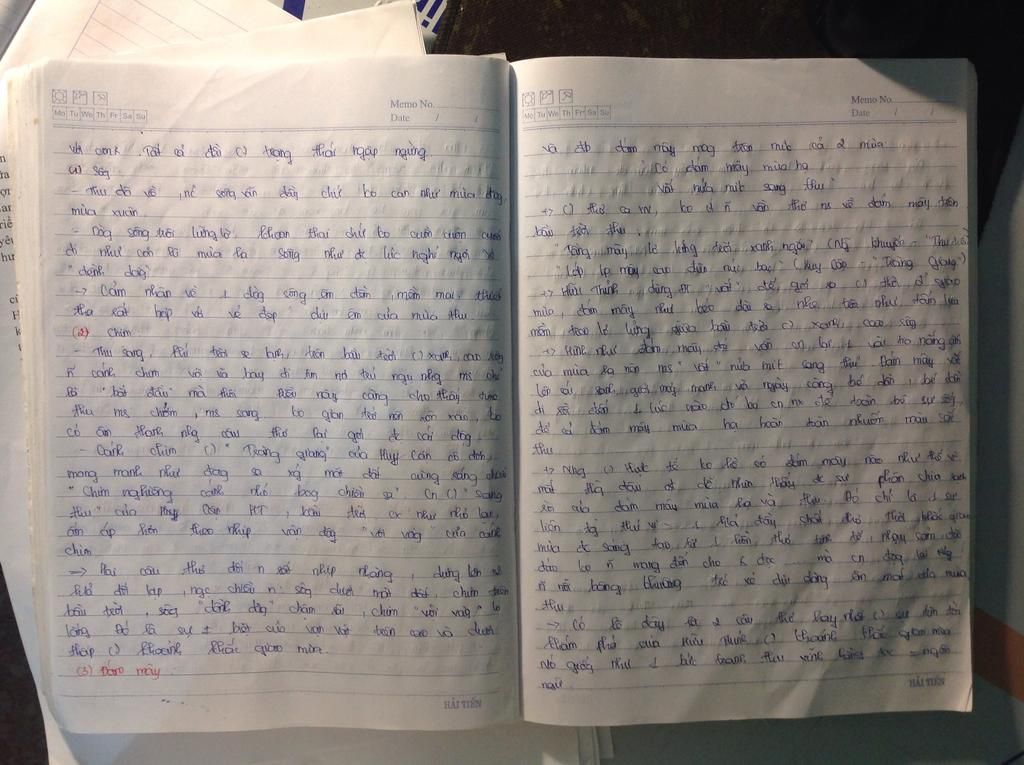 Memo No.
Mo Tu We Th Fr Sa Su
Date / /
Tất cả đều () trong thái ngập ngừng
(1) Sông
- Thu đã về, nc sông vẫn đầy chứ ko cạn như mùa đông,
mùa xuân
- Dòng sông trôi lững lờ, khoan thai chứ ko cuồn cuộn
đi như con lũ mùa hạ sông như đc lúc nghỉ ngơi và
"dềnh dàng"
-> Cảm nhận về 1 dòng sông êm đềm, mềm mại, thướt
tha rất hợp với vẻ đẹp dịu êm của mùa thu
(2) Chim
- Thu sang, khí trời se lạnh, trên bầu trời () xanh, cao
ñ cánh chim vội vã bay đi tìm nơi trú ngụ nhg ms chỉ
là "bắt đầu" mà thôi Điều này cũng cho thấy được
thu ms chớm, ms sang ko gian trở nên xôn xao, ko
có âm thanh nhg câu thơ lại gợi đc cái động
- Cánh chim () "Tràng giang" của Huy Cận cô đơn,
mong manh như đang sa xg mặt đất cùng ráng chiều
"Chim nghiêng cánh nhỏ bóng chiều sa" Cn () "Sang
thu" của HT, bầu trời cx như nhỏ lại,
ấm áp hơn theo nhịp vẫn đây "vội vàng" của cánh
chim
=> Hai câu thơ đối n rất nhịp nhàng, dựng lên sự
đối lập, ngc chiều n: sông dưới mặt đất, chim trên
bầu trời, sông "dềnh dàng" chậm rãi, chim "vội vàng" lo
lắng Đó là sự ≠ biệt của vạn vật trên cao và dưới
thấp () khoảnh khắc giao mùa.
(3) Đám mây
HẢI TIẾN
Memo No.
Mo Tu We Th Fr Sa Su
Date / /
và đb đám mây mang trên mình cả 2 mùa:
"Có đám mây mùa hạ
Vắt nửa mình sang thu"
+> () thơ ca VN, ko ít ñ vần thơ ns về đám mây trên
bầu trời thu.
"Tầng mây lơ lửng trời xanh ngắt" (Ng Khuyến - "Thu điếu")
"Lớp lớp mây cao đùn núi bạc" (Huy Cận - "Tràng Giang")
+> Hữu Thỉnh dùng ĐT "vắt" để gợi ra () thời gian
mùa, đám mây như kéo dài ra, nhẹ trôi như tấm lụa
mềm treo lơ lửng giữa bầu trời () xanh, cao
+> Hình như đám mây đó vẫn cn lại 1 vài tia nắng
của mùa hạ nên ms "vắt nửa mình sang thu" Đám mây
ấy và ngày càng bé dần, bé dần
đi rồi đến 1 lúc nào đó ko cn nx để toàn bộ sự sống,
để cả đám mây mùa hạ hoàn toàn nhuốm màu sắc
thu
+> Nhg () thực tế ko hề có đám mây nào như thế vì
mắt thg đâu dễ nhìn thấy đc sự phân chia rạch
ròi của đám mây mùa hạ và thu. Đó chỉ là 1 sự
liên tg thú vị - 1 h/a đầy chất thơ thời khắc giao
mùa đc sáng tạo từ 1 hồn thơ tinh tế, nhạy cảm
đáo ko ñ mang đến cho ng đọc mà cn đọng lại
ñ nỗi bâng khuâng trước vẻ dịu dàng êm mát của mùa
thu
-> Có lẽ đây là 2 câu thơ hay nhất () sự tìm tòi
khám phá của Hữu Thỉnh () khoảnh khắc giao mùa
Nó giống như 1 bức tranh thu vĩnh hằng = ngôn
ngữ.
HẢI TIẾN